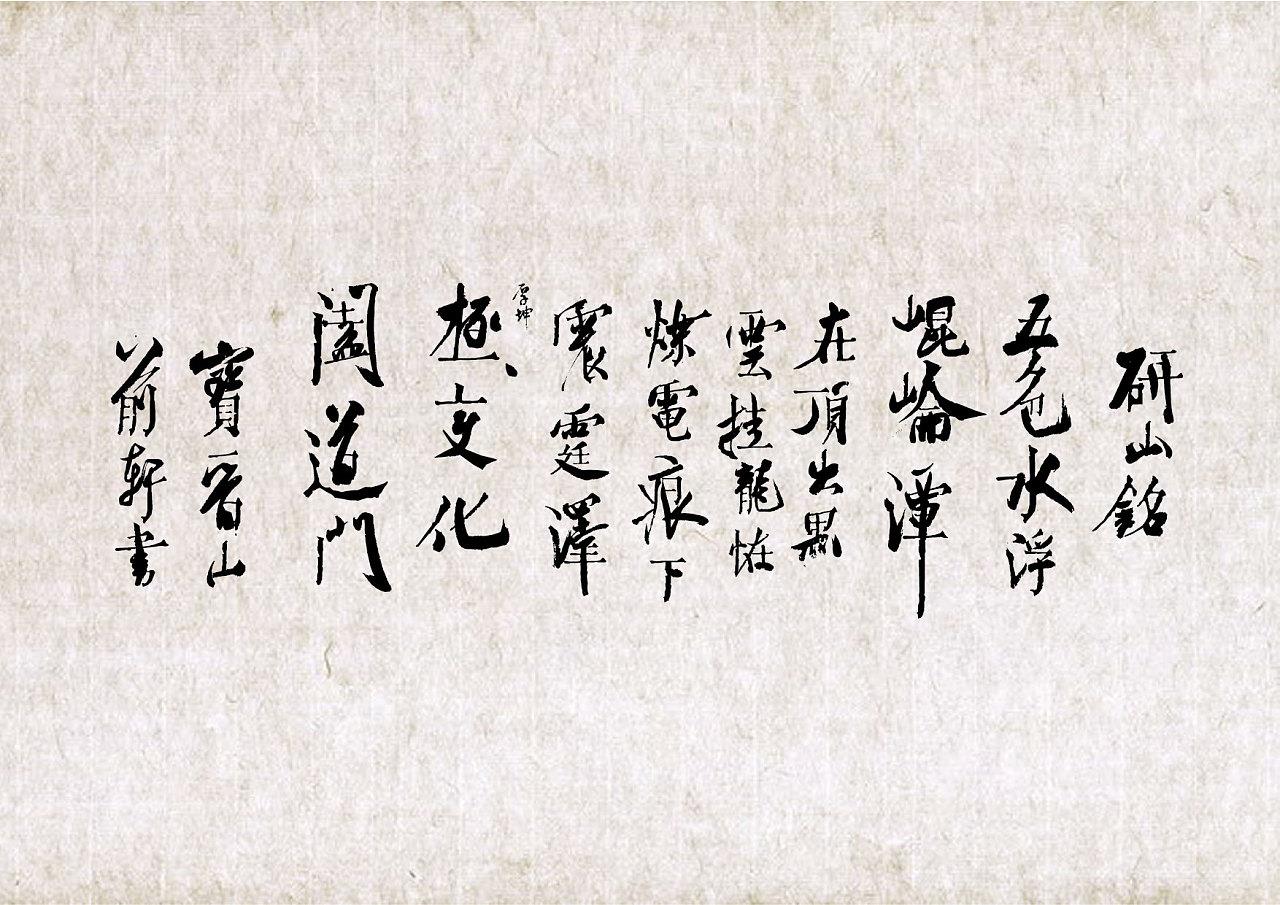 研山銘
五色水浮
崐崘潭
在頂出黑
雲挂龍恠
爍電痕下
震霆澤
厚坤
極、文化
闔道門
寶晉山
前軒書